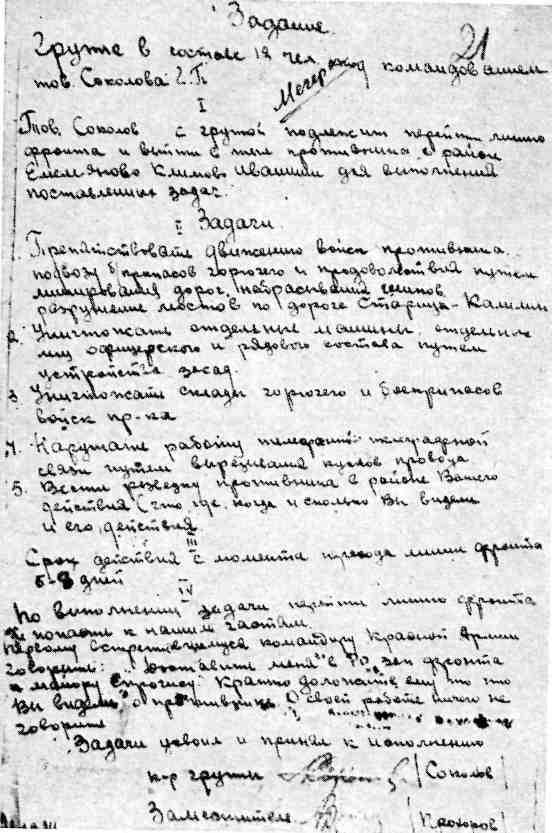 Задание
21
Группе в составе 12 чел. под командованием
тов. Соколова
I
Тов. Соколов с группой подлежит перейти линию
фронта и выйти в тыл противника в район
Емельяново Климово Ивашики для выполнения
поставленных задач.
II Задачи
Препятствовать движению войск противника
подвозу б/припасов горючего и продовольствия путем
минирования дорог, набрасывания шипов
разрушение мостов по дороге Старица-Калинин
2. Уничтожать отдельные машины, отдельных
лиц офицерского и рядового состава путем
устройства засад.
3. Уничтожать склады горючего и боеприпасов
войск пр-ка
4. Нарушать работу телефонно-телеграфной
связи путем вырезывания кусков провода
5. Вести разведку противника в районе Вашего
действия (что, где, когда и сколько Вы видели
и его действия
III
Срок действия с момента перехода линии фронта
5-8 дней
IV
По выполнении задачи перейти линию фронта
и попасть к нашим частям.
Первому встретившемуся командиру Красной Армии
говорите: "Доставьте меня" в фронта
к майору кратко доложить ему то что
Вы видели о противнике. О своей работе ничего не
говорите
Задачи усвоил и принял к исполнению
к-р группы (Соколов)
Заместитель (Прохоров)